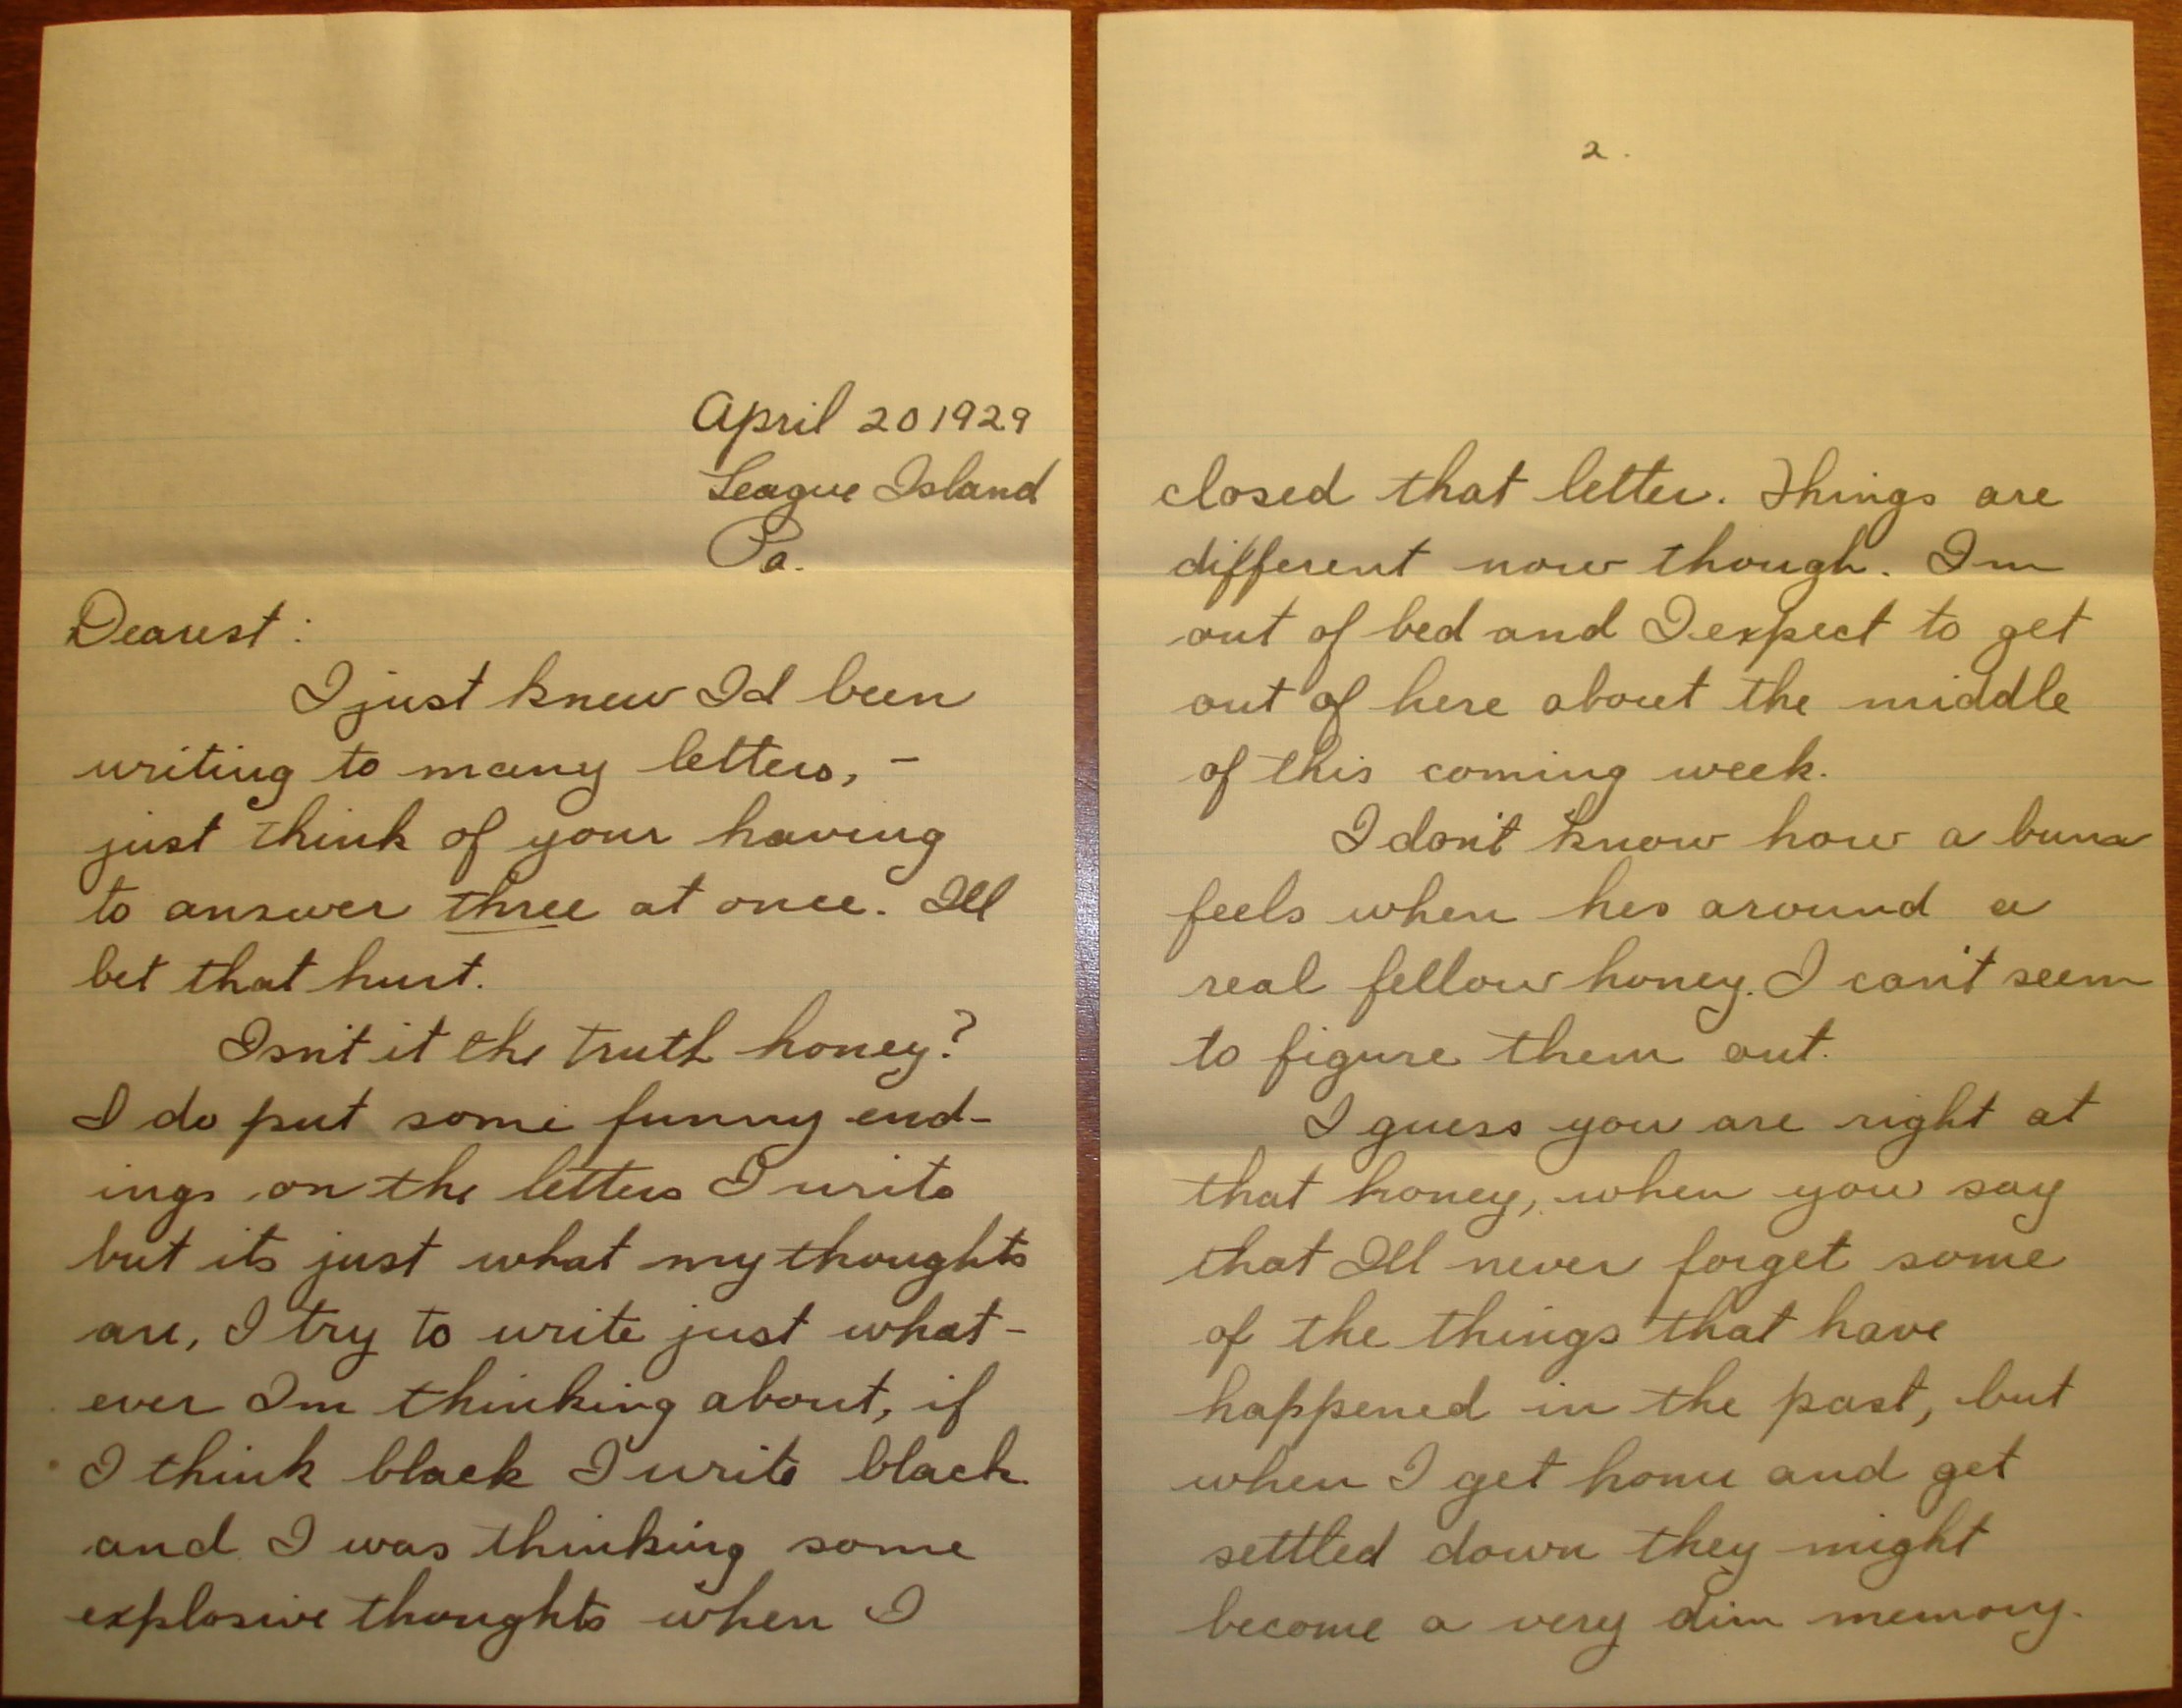 April 20 1929
League Island
Pa.
Dearest:
I just knew Id been
writing to many letters, -
just think of your having
to answer three at once. Ill
bet that hurt.
Isn't it the truth honey?
I do put some funny end-
ings on the letters I write
but its just what my thoughts
are, I try to write just what-
ever Im thinking about, if
I think black I write black
and I was thinking some
explosive thoughts when I
2.
closed that letter. Things are
different now though. Im
out of bed and I expect to get
out of here about the middle
of this coming week.
I don't know how a bum
feels when hes around a
real fellow honey. I can't seem
to figure them out.
I guess you are right at
that honey, when you say
that Ill never forget some
of the things that have
happened in the past, but
when I get home and get
settled down they might
become a very dim memory.